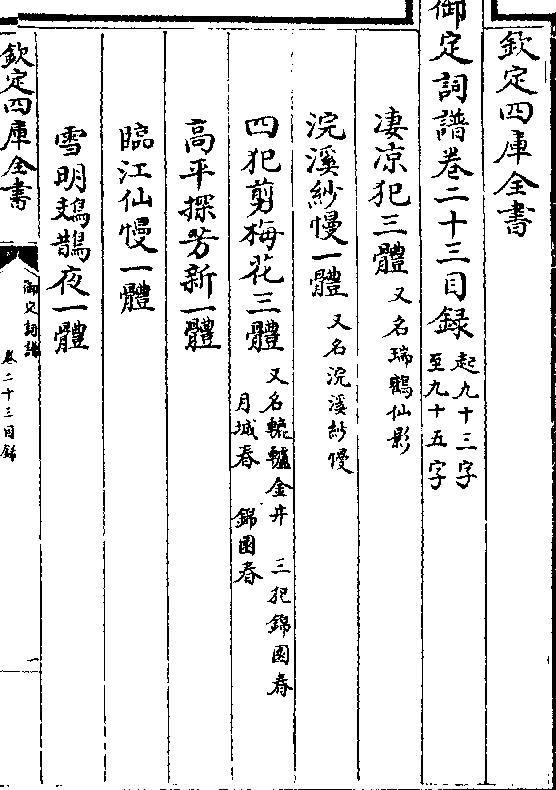 欽定四庫全書
御定詞譜卷二十三目録 起九十三字
至九十五字
淒涼犯三體 又名瑞鶴仙影
浣溪紗慢一體 又名浣溪紗慢
四犯剪梅花三體 又名轆轤金井 三犯錦園春
月城春 錦園春
高平探芳新一體
臨江仙慢一體
雪明鳷鵲夜一體
欽定四庫全書
御定詞譜
卷二十三目録
一